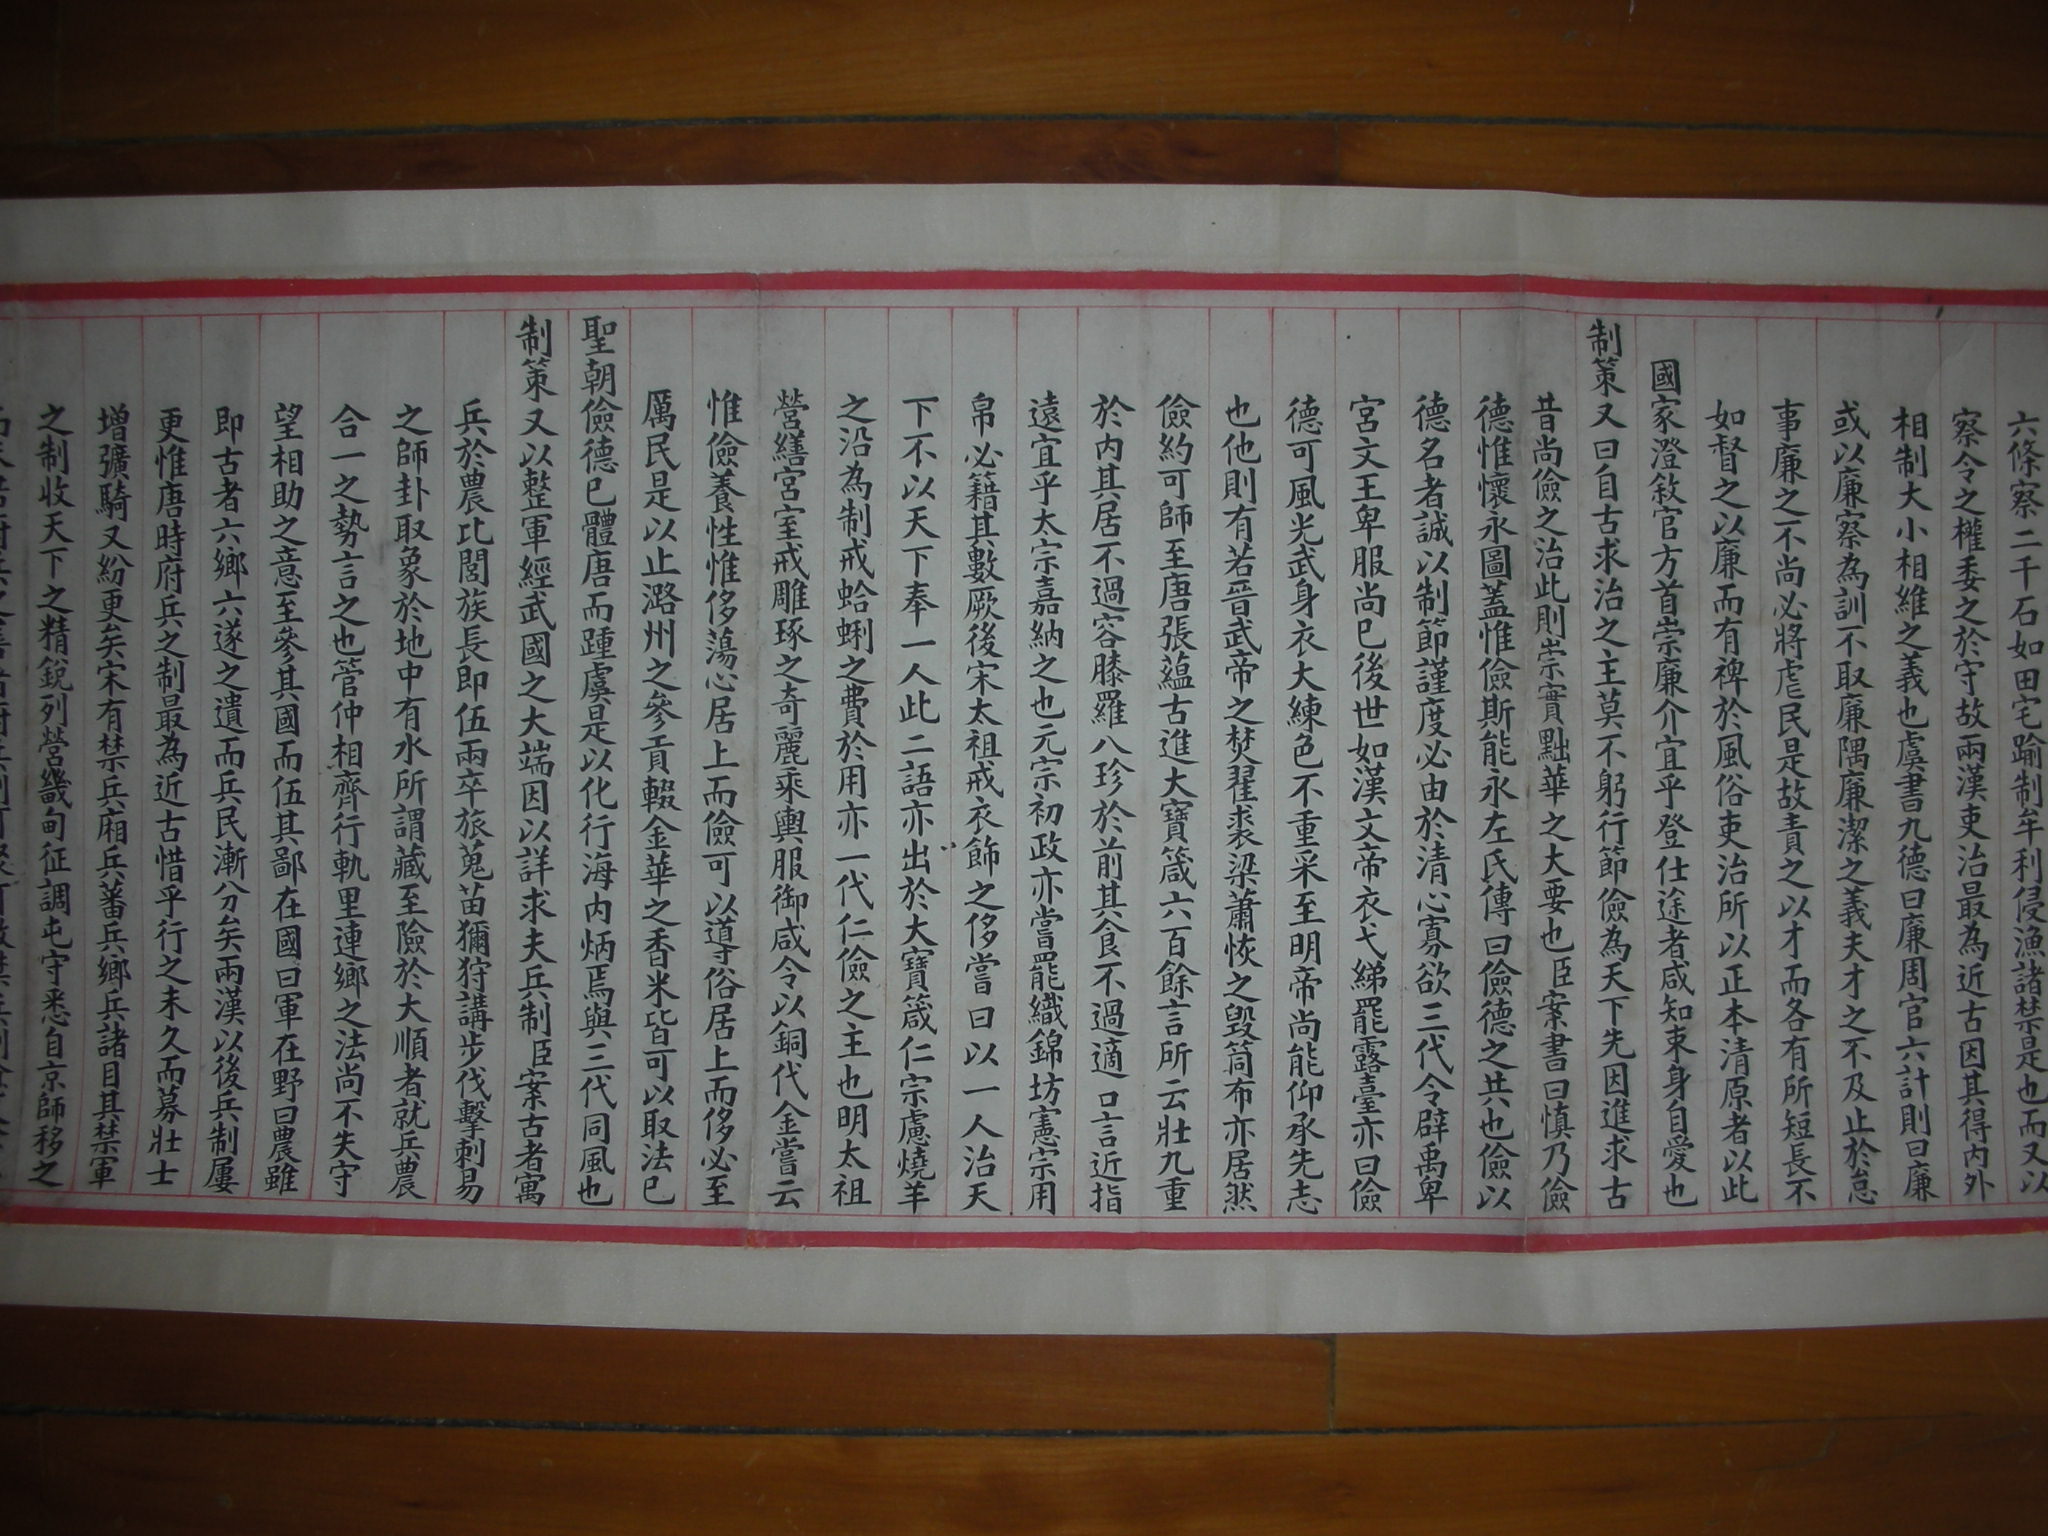 六條察二千石如田宅踰制牟利侵漁諸禁是也而又以
察令之權委之於守故兩漢吏治最為近古因其得內外
相制大小相維之義也虞書九德曰廉周官六計則曰廉
或以廉察為訓不取廉隅廉潔之義夫才之不及止於怠
事廉之不尚必將虐民是故責之以才而各有所短長不
如督之以廉而有裨於風俗吏治所以正本清原者以此
國家澄敘官方首崇廉介宜乎登仕途者咸知束身自愛也
制策又曰自古求治之主莫不躬行節儉為天下先因進求古
昔尚儉之治此則崇實黜華之大要也臣案書曰慎乃儉
德惟懷永圖蓋惟儉斯能永左氏傳曰儉德之共也儉以
德名者誠以制節謹度必由於清心寡欲三代令辟禹卑
宮文王卑服尚已後世如漢文帝衣弋綈罷露臺亦曰儉
德可風光武身衣大練色不重采至明帝尚能仰承先志
也他則有若晉武帝之焚翟裘梁蕭恢之毀筒布亦居然
儉約可師至唐張蘊古進大寶箴六百餘言所云壯九重
於內其居不過容膝羅八珍於前其食不過適口言近指
遠宜乎太宗嘉納之也元宗初政亦嘗罷織錦坊憲宗用
帛必籍其數厥後宋太祖戒衣飾之侈嘗曰以一人治天
下不以天下奉一人此二語亦出於大寶箴仁宗慮燒羊
之沿為制戒蛤蜊之費於用亦一代仁儉之主也明太祖
營繕宮室戒雕琢之奇麗乘輿服御咸令以銅代金嘗云
惟儉養性惟侈蕩心居上而儉可以導俗居上而侈必至
厲民是以止潞州之參貢輟金華之香米皆可以取法已
聖朝儉德已體唐而踵虞是以化行海內炳焉與三代同風也
制策又以整軍經武國之大端因以詳求夫兵制臣案古者寓
兵於農比閭族長即伍兩卒旅蒐苗獮狩講步伐擊刺易
之師卦取象於地中有水所謂藏至險於大順者就兵農
合一之勢言之也管仲相齊行軌里連鄉之法尚不失守
望相助之意至參其國而伍其鄙在國曰軍在野曰農雖
即古者六鄉六遂之遺而兵民漸分矣兩漢以後兵制屢
更惟唐時府兵之制最為近古惜乎行之未久而募壯士
增彍騎又紛更矣宋有禁兵廂兵蕃兵鄉兵諸目其禁軍
之制收天下之精銳列營畿甸征調屯守悉自京師移之